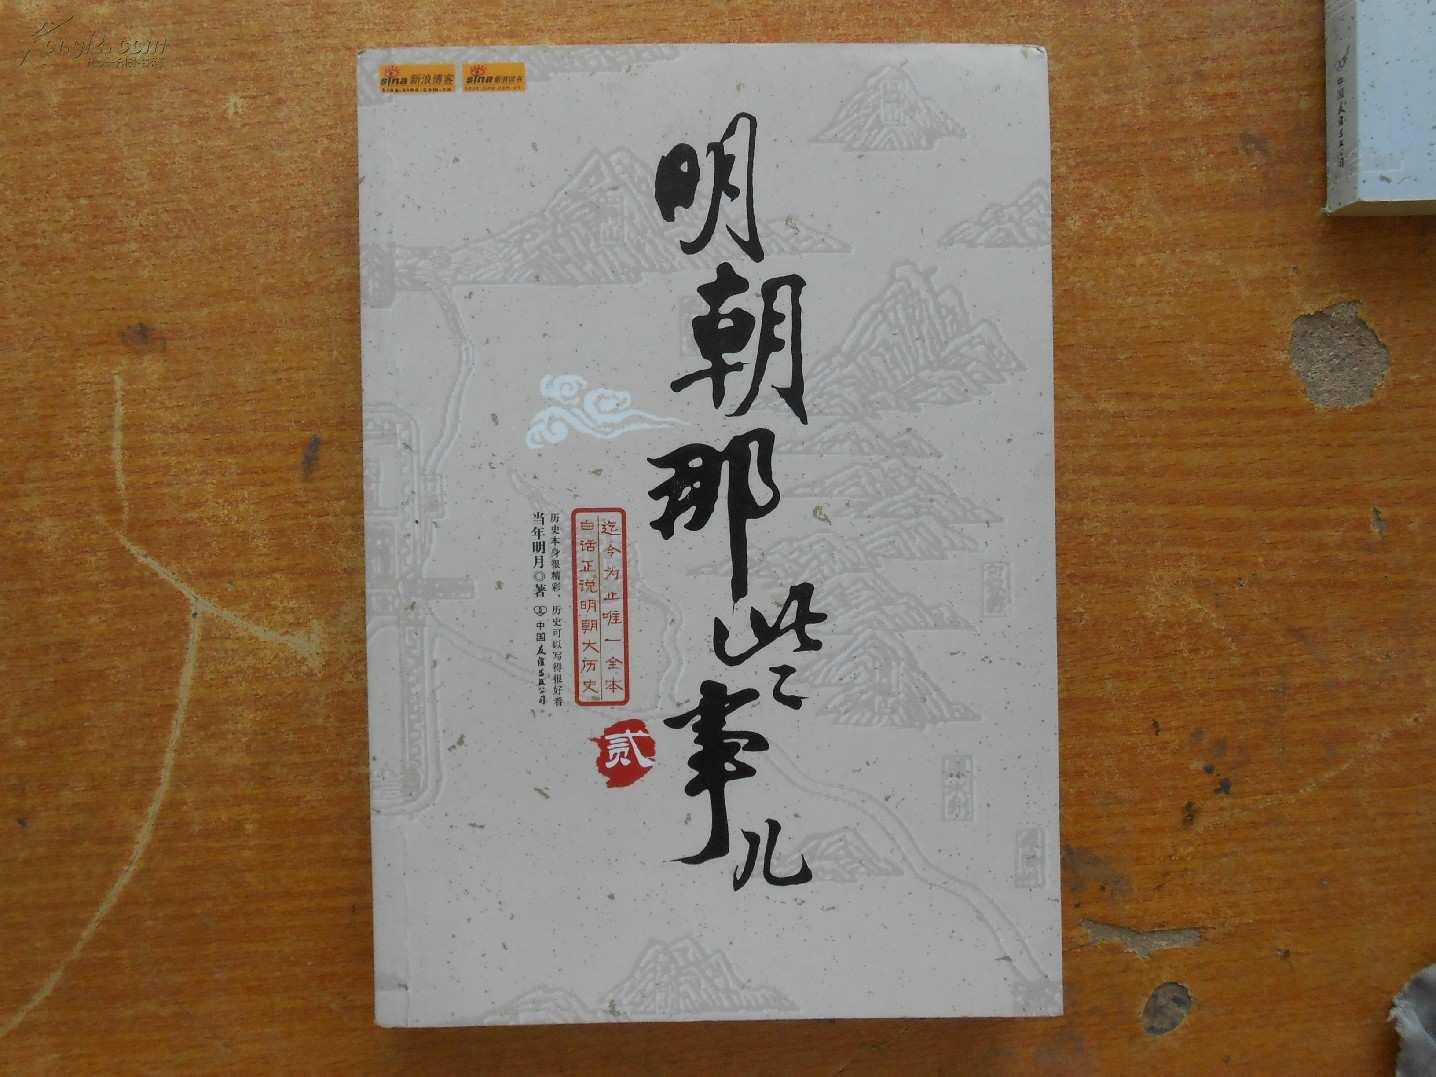 sina 新浪博客
sina 新浪读书
明朝那些事儿
迄今为止唯一全本
白话正说明朝大历史
历史本身很精彩，历史可以写得很好看
当年明月◎著 中国友谊出版公司
贰
中国友谊出版公司